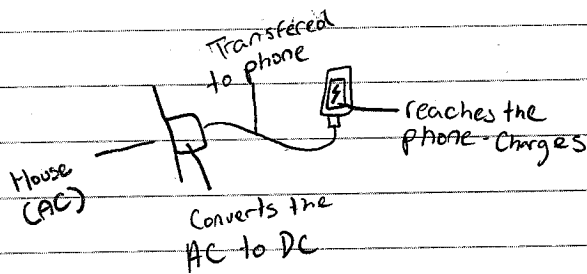 Transfered
to phone
reaches the
phone-Charges
House
(AC)
Converts the
AC to DC